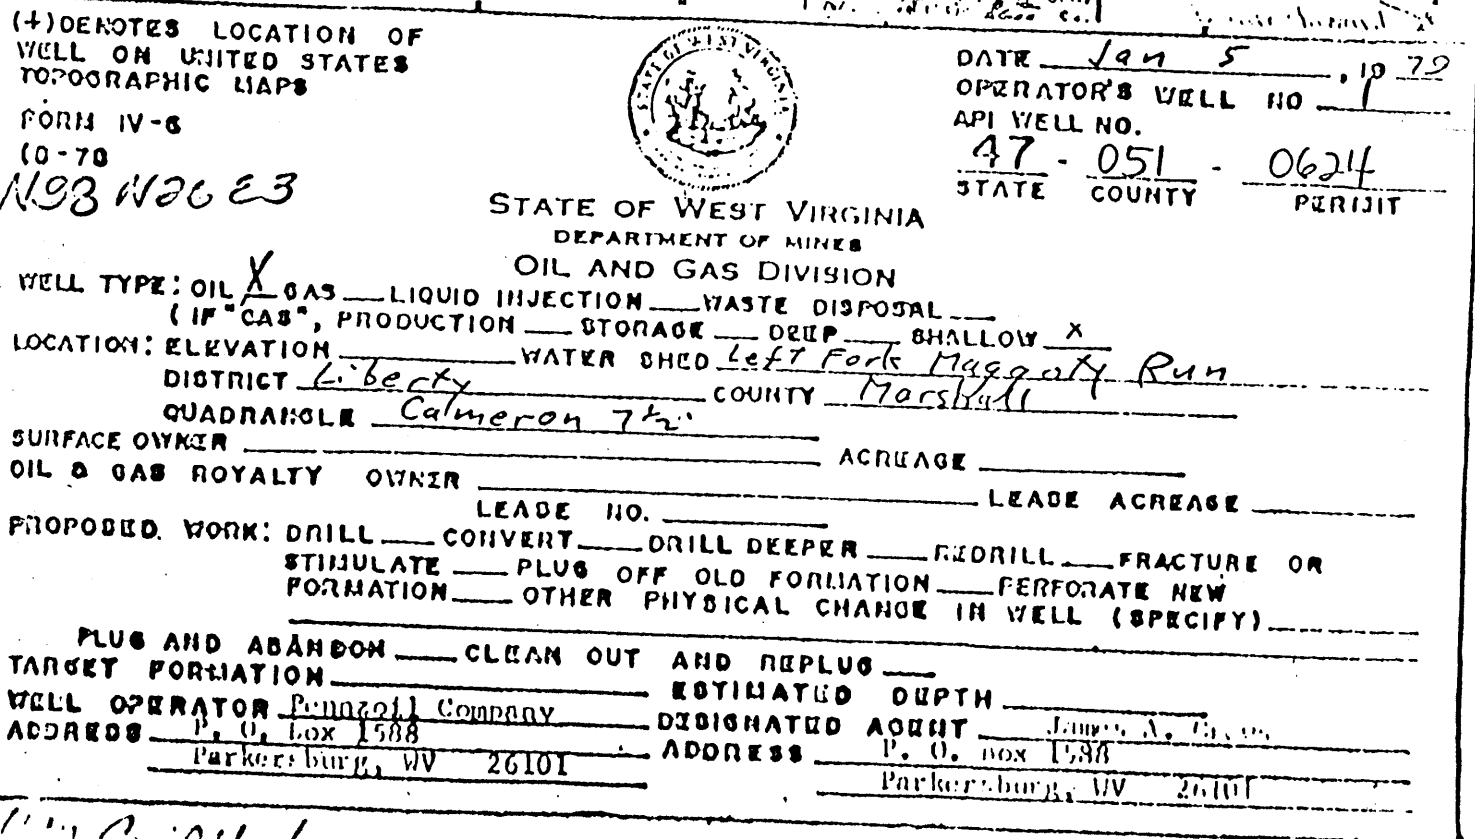 (+) DENOTES LOCATION OF
WELL ON UNITED STATES
TOPOGRAPHIC MAPS
FORM IV-6
(8-78
N93 N26 E3
STATE OF WEST VIRGINIA
DATE Jan 5, 1979
OPERATOR'S WELL NO 1
API WELL NO.
47 - 051 - 0624
STATE COUNTY PERMIT
STATE OF WEST VIRGINIA
DEPARTMENT OF MINES
OIL AND GAS DIVISION
WELL TYPE: OIL X GAS ___ LIQUID INJECTION ___ WASTE DISPOSAL ___
(IF "GAS", PRODUCTION ___ STORAGE ___ DEEP ___ SHALLOW X
LOCATION: ELEVATION ___ WATER SHED Left Fork Maggoty Run
DISTRICT Liberty COUNTY Marshall
QUADRANGLE Calmeron 7 1/2'
SURFACE OWNER ___ ACREAGE ___
OIL & GAS ROYALTY OWNER ___ LEASE ACREAGE ___
LEASE NO. ___
PROPOSED WORK: DRILL ___ CONVERT ___ DRILL DEEPER ___ REDRILL ___ FRACTURE OR
STIMULATE ___ PLUG OFF OLD FORMATION ___ PERFORATE NEW
FORMATION ___ OTHER PHYSICAL CHANGE IN WELL (SPECIFY) ___
PLUG AND ABANDON ___ CLEAN OUT AND REPLUG ___
TARGET FORMATION ___ ESTIMATED DEPTH ___
WELL OPERATOR Pennzoil Company DESIGNATED AGENT James A.
ADDRESS P. O. Box 1588 ADDRESS P. O. Box 1588
Parkersburg, WV 26101 Parkersburg, WV 26101